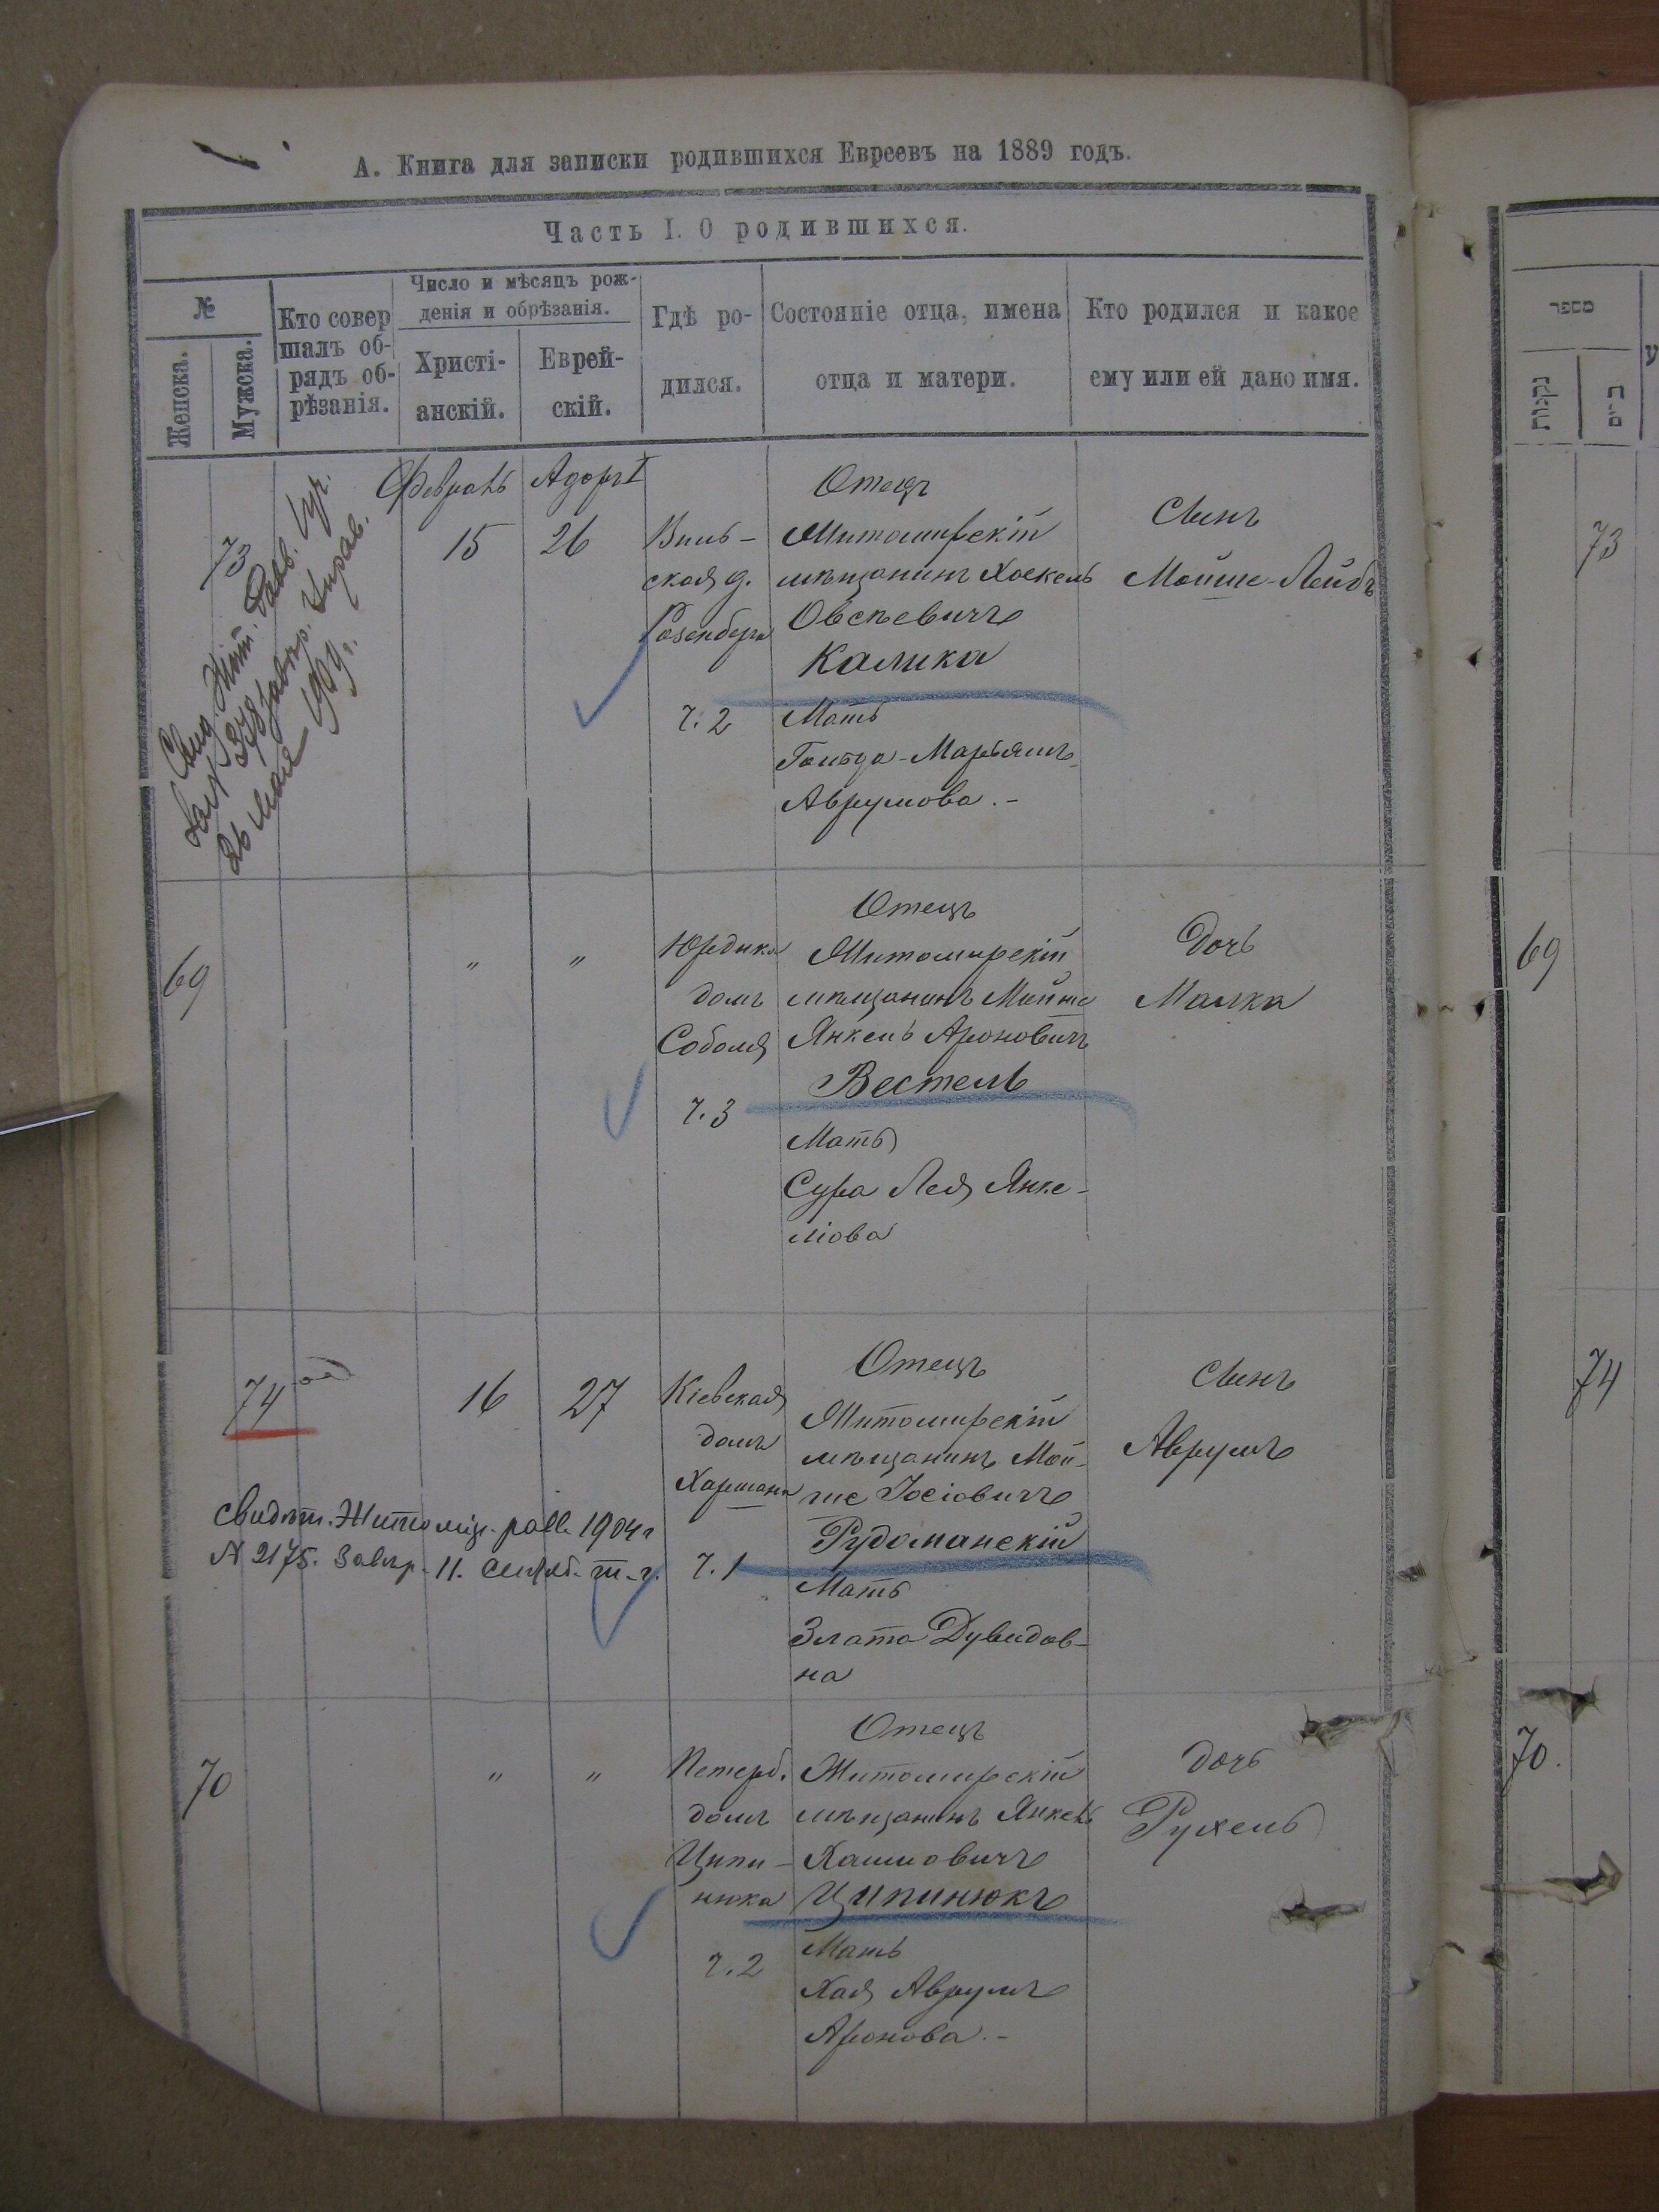 А. Книга для записки родившихся Евреевъ на 1889 годъ.
Часть I. О родившихся.
№
Женска.
Мужска.
Кто совер
шалъ об-
рядъ об-
рѣзанія.
Число и мѣсяцъ рож-
денія и обрѣзанія.
Христі-
анскій.
Еврей-
скій.
Гдѣ ро-
дился.
Состояніе отца, имена
отца и матери.
Кто родился и какое
ему или ей дано имя.
73
Февраль
15
Адоръ I
26
Виль-
ская д.
Розенберга
ч. 2
Отецъ
Житомирскій
мѣщанинъ Хаскель
Овсѣевичъ
Калика
Мать
Гольда-Марьямъ
Аврумова.-
Сынъ
Мойше-Лейбъ
26 мая 1909 г.
69
"
"
Юрдика
домъ
Соболя
ч. 3
Отецъ
Житомирскій
мѣщанинъ Мойше
Янкель Ароновичъ
Вестель
Мать
Сура Лея Янке-
ліова
Дочь
Малка
74
16
27
Кіевская
домъ
Харшана
ч. 1
Отецъ
Житомирскій
мѣщанинъ Мой-
ше Іосіовичъ
Рудоманскій
Мать
Злата Дувидов-
на
Сынъ
Аврумъ
Свидѣт. Житомір. равв. 1904 г
№ 2175. Завѣр. 11. Сентяб. т-г.
70
"
"
Петерб.
домъ
Ципи-
нюка
ч. 2
Отецъ
Житомирскій
мѣщанинъ Янкель
Хаимовичъ
Ципинюкъ
Мать
Хая Аврумъ
Аронова.-
дочь
Рухель
מספר
נקבות
זכרים
73
69
74
70.